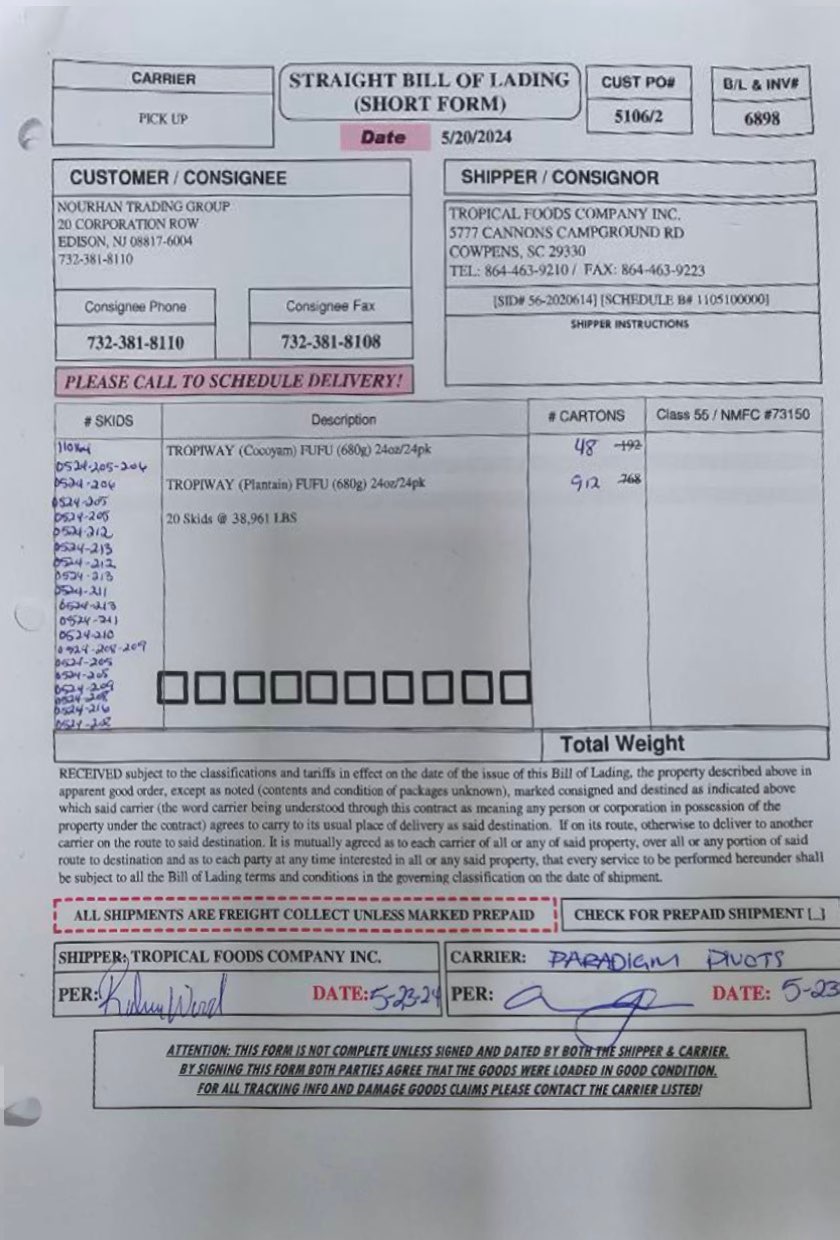 CARRIER
PICK UP
STRAIGHT BILL OF LADING
(SHORT FORM)
Date 5/20/2024
CUST PO#
5106/2
B/L & INV#
6898
CUSTOMER / CONSIGNEE
NOURHAN TRADING GROUP
20 CORPORATION ROW
EDISON, NJ 08817-6004
732-381-8110
Consignee Phone
732-381-8110
Consignee Fax
732-381-8108
SHIPPER / CONSIGNOR
TROPICAL FOODS COMPANY INC.
5777 CANNONS CAMPGROUND RD
COWPENS, SC 29330
TEL: 864-463-9210 / FAX: 864-463-9223
[SID# 56-2020614] [SCHEDULE B# 1105100000]
SHIPPER INSTRUCTIONS
PLEASE CALL TO SCHEDULE DELIVERY!
# SKIDS Description # CARTONS Class 55 / NMFC #73150
TROPIWAY (Cocoyam) FUFU (680g) 24oz/24pk 48 192
0524-205-206
0524-206 TROPIWAY (Plantain) FUFU (680g) 24oz/24pk 912 768
0524-205
0524-205 20 Skids @ 38,961 LBS
0524-212
0524-213
0524-212
0524-213
0524-211
0524-213
0524-211
0524-210
0524-208-209
0524-205
0524-205
0524-209
0524-208
0524-216
0524-208
Total Weight
RECEIVED subject to the classifications and tariffs in effect on the date of the issue of this Bill of Lading, the property described above in
apparent good order, except as noted (contents and condition of packages unknown), marked consigned and destined as indicated above
which said carrier (the word carrier being understood through this contract as meaning any person or corporation in possession of the
property under the contract) agrees to carry to its usual place of delivery as said destination. If on its route, otherwise to deliver to another
carrier on the route to said destination. It is mutually agreed as to each carrier of all or any of said property, over all or any portion of said
route to destination and as to each party at any time interested in all or any said property, that every service to be performed hereunder shall
be subject to all the Bill of Lading terms and conditions in the governing classification on the date of shipment.
ALL SHIPMENTS ARE FREIGHT COLLECT UNLESS MARKED PREPAID
CHECK FOR PREPAID SHIPMENT [_]
SHIPPER: TROPICAL FOODS COMPANY INC.
PER: DATE: 5-23-24
CARRIER: PARADIGM PIVOTS
PER: DATE: 5-23
ATTENTION: THIS FORM IS NOT COMPLETE UNLESS SIGNED AND DATED BY BOTH THE SHIPPER & CARRIER.
BY SIGNING THIS FORM BOTH PARTIES AGREE THAT THE GOODS WERE LOADED IN GOOD CONDITION.
FOR ALL TRACKING INFO AND DAMAGE GOODS CLAIMS PLEASE CONTACT THE CARRIER LISTED!